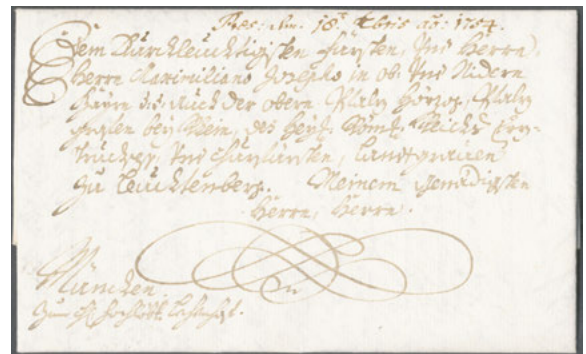 Pres: den 18ᵗ Xbris aõ: 1754.
Dem Durchleuchtigisten Fürsten, Und Herrn,
Herrn Maximiliano Josepho in ob: Und Nidern
Bayrn auch der obern Pfalz Herzog, Pfalz
grafen bey Rhein, des Heyl: Röm: Reichs Erz-
truchses, Und Churfürsten, Landtgrauen
zu Leuchtenberg. Meinem genedigisten
Herrn, Herrn.
München
zum